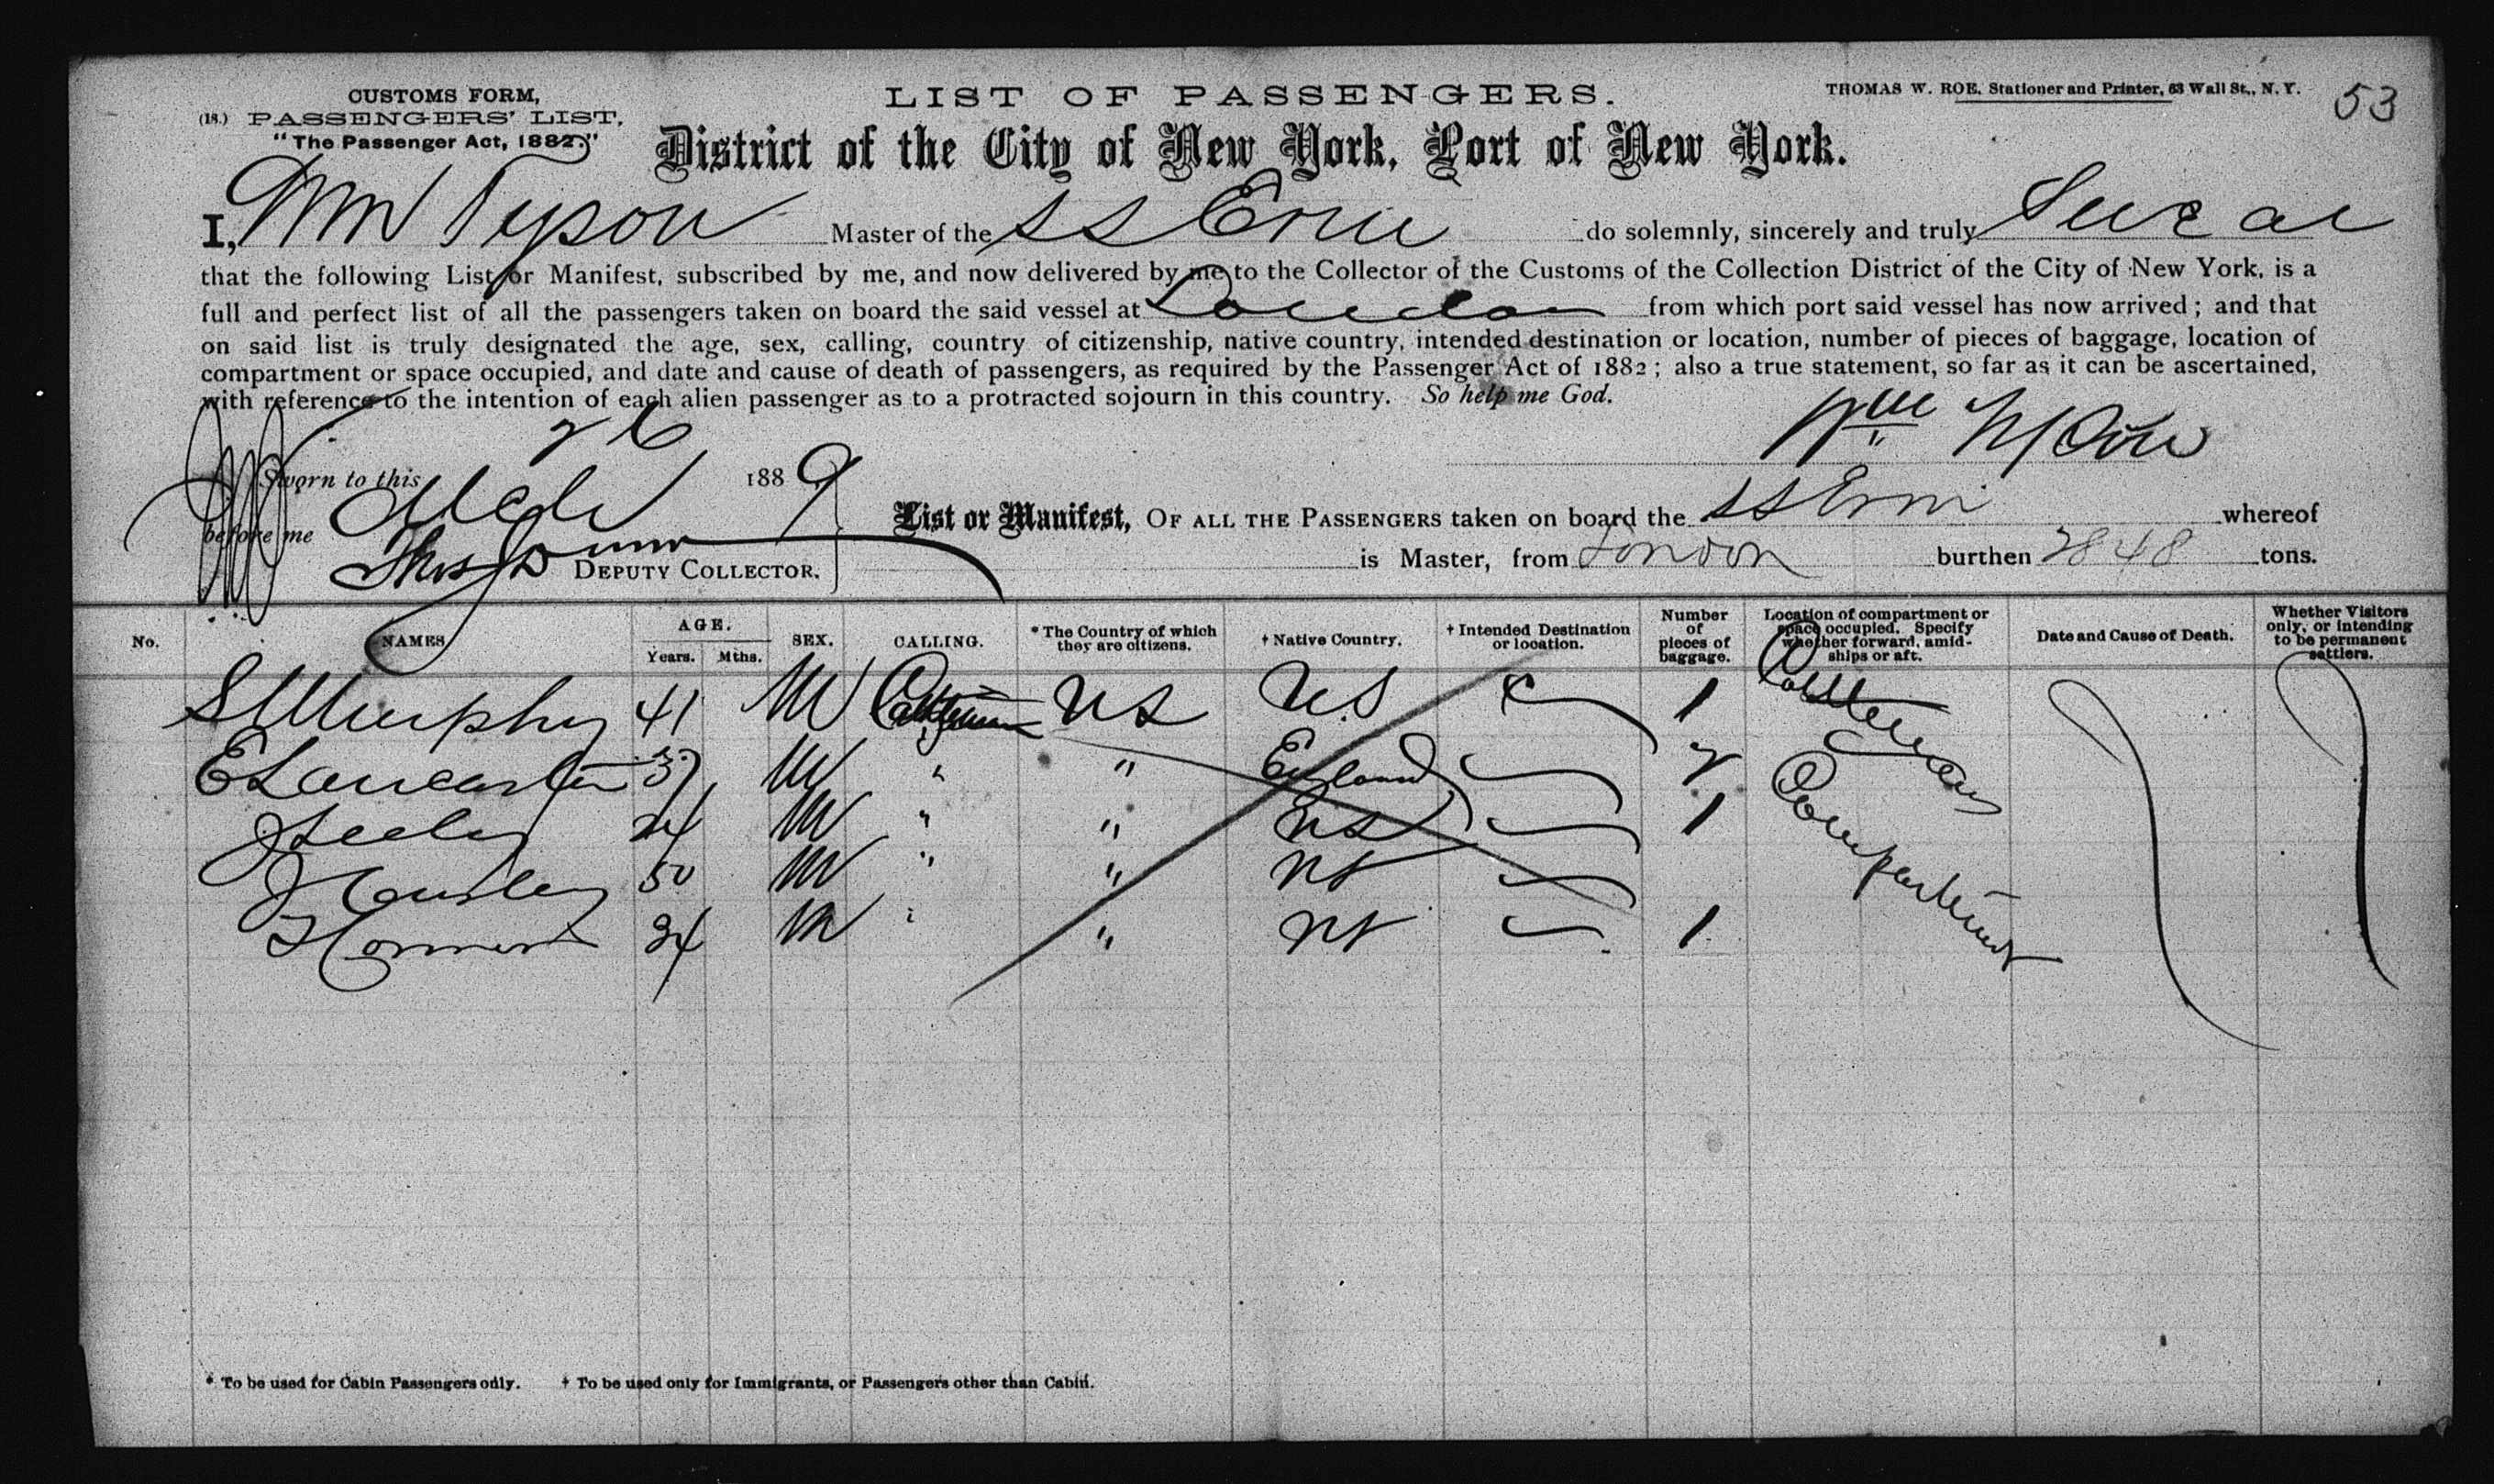 CUSTOMS FORM,
(18.) PASSENGERS' LIST,
"The Passenger Act, 1882."
LIST OF PASSENGERS.
THOMAS W. ROE, Stationer and Printer, 63 Wall St., N. Y.
53
District of the City of New York, Port of New York.
I, Wm Tyson Master of the SS Erin do solemnly, sincerely and truly Swear
that the following List or Manifest, subscribed by me, and now delivered by me to the Collector of the Customs of the Collection District of the City of New York, is a
full and perfect list of all the passengers taken on board the said vessel at London from which port said vessel has now arrived; and that
on said list is truly designated the age, sex, calling, country of citizenship, native country, intended destination or location, number of pieces of baggage, location of
compartment or space occupied, and date and cause of death of passengers, as required by the Passenger Act of 1882; also a true statement, so far as it can be ascertained,
with reference to the intention of each alien passenger as to a protracted sojourn in this country. So help me God.
Wm Tyson
Sworn to this 26 1889
before me
Thos Dunn DEPUTY COLLECTOR.
List or Manifest, OF ALL THE PASSENGERS taken on board the SS Erin whereof
is Master, from London burthen 2848 tons.
No. NAMES AGE. Years. Mths. SEX. CALLING. * The Country of which they are citizens. † Native Country. † Intended Destination or location. Number of pieces of baggage. Location of compartment or space occupied. Specify whether forward, amidships or aft. Date and Cause of Death. Whether Visitors only, or intending to be permanent settlers.
S Murphy 41 M Cattleman US US 1 Cattlemans
E Lancaster 37 M " " England 2 Compartment
J Seeley 24 M " " US 1
J 50 M " " US
T Connors 34 M " " US 1
* To be used for Cabin Passengers only. † To be used only for Immigrants, or Passengers other than Cabin.